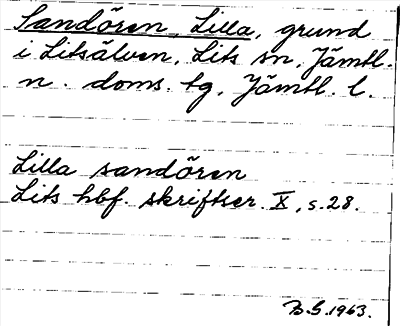 Sandören, Lilla, grund
i Litsälven, Lits sn, Jämtl.
n. doms. tg, Jämtl. l.
Lilla sandören
Lits hbf. skrifter. X, s. 28.
B.S. 1963.